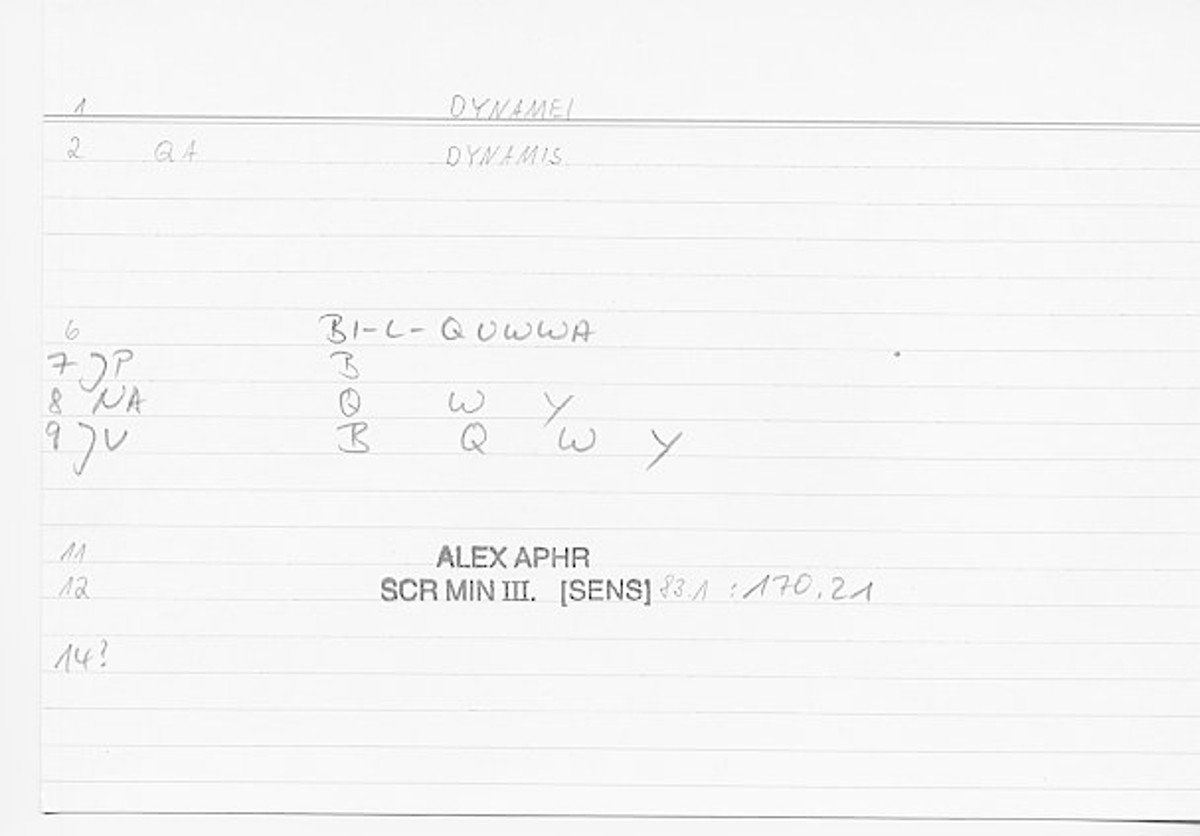 1 DYNAMEI
2 QA DYNAMIS
6 BI-L-QUWWA
7 JP B
8 NA Q W Y
9 JV B Q W Y
11 ALEX APHR
12 SCR MIN III. [SENS] 83.1 : 170.21
14?